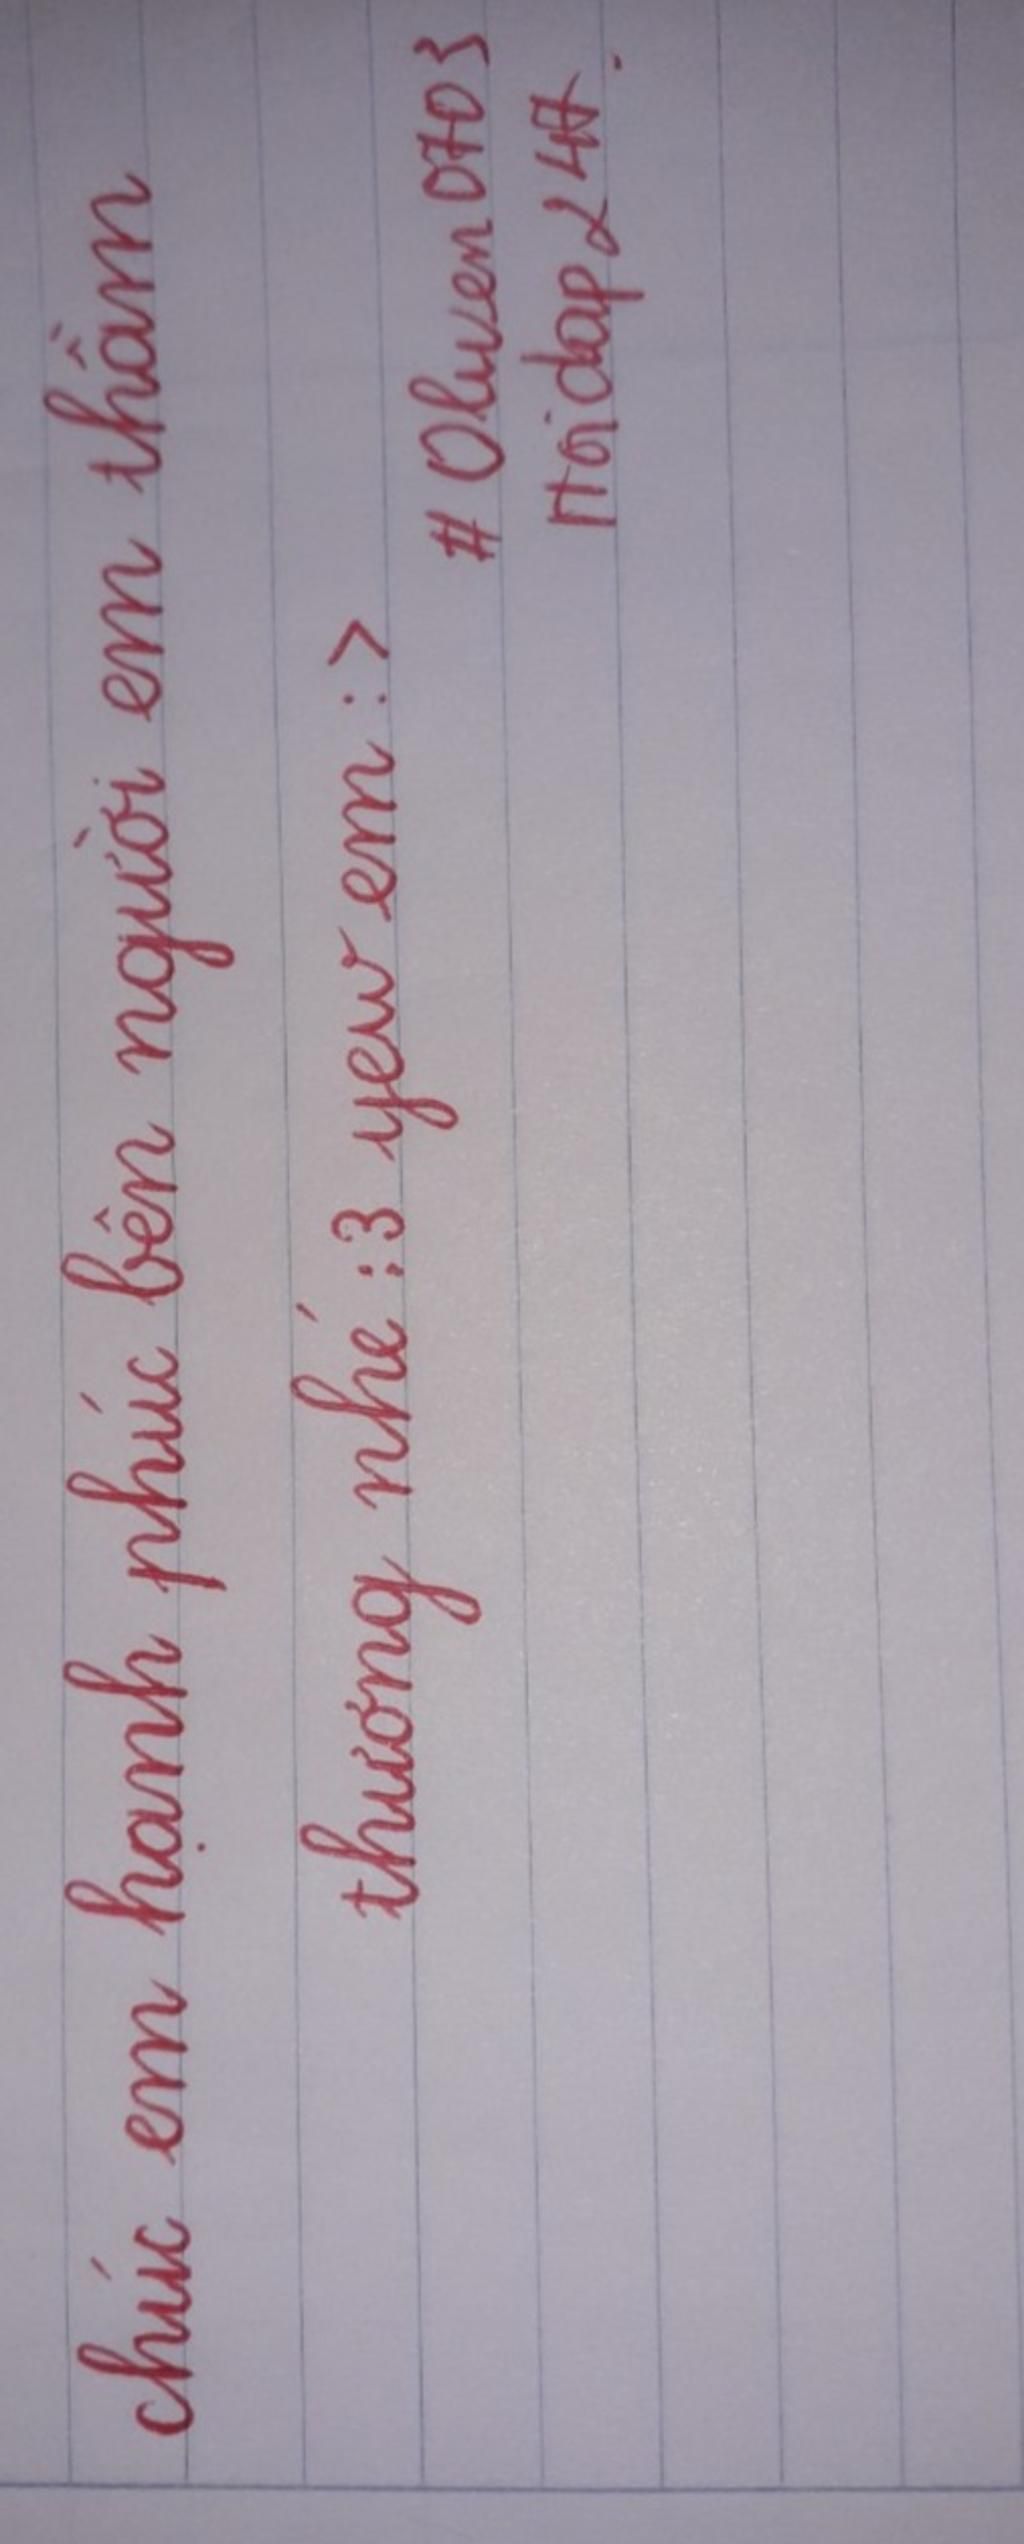 chúc em hạnh phúc bên người em thầm
thương nhé :3 yew em :>
# Oluven0703
Hoidap247.